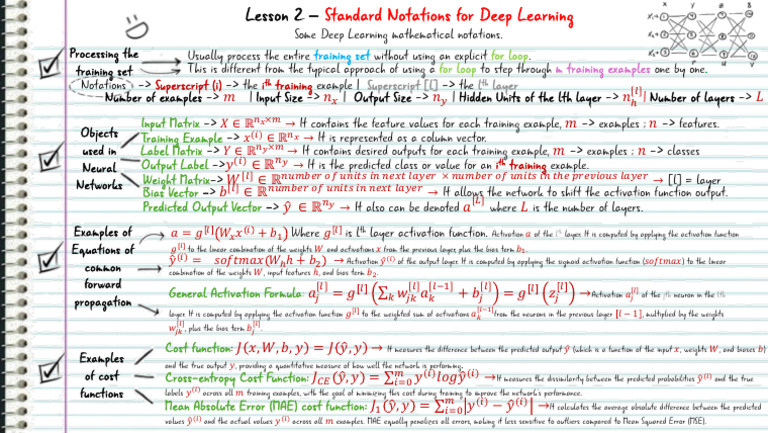 Lesson 2 – Standard Notations for Deep Learning
Some Deep Learning mathematical notations.
x y z 8
Processing the training set
Usually process the entire training set without using an explicit for loop.
This is different from the typical approach of using a for loop to step through m training examples one by one.
Notations -> Superscript (i) -> the i^th training example | Superscript [l] -> the l^th layer
Number of examples -> m | Input Size -> n_x | Output Size -> n_y | Hidden Units of the lth layer -> n_h^[l] | Number of layers -> L
Objects used in Neural Networks
Input Matrix -> X ∈ ℝ^(n_x×m) → It contains the feature values for each training example, m -> examples ; n -> features.
Training Example -> x^(i) ∈ ℝ^(n_x) → It is represented as a column vector.
Label Matrix -> Y ∈ ℝ^(n_y×m) → It contains desired outputs for each training example, m -> examples ; n -> classes
Output Label -> y^(i) ∈ ℝ^(n_y) → It is the predicted class or value for an i^th training example.
Weight Matrix-> W^[l] ∈ ℝ^(number of units in next layer × number of units in the previous layer) → [l] = layer
Bias Vector -> b^[l] ∈ ℝ^(number of units in next layer) → It allows the network to shift the activation function output.
Predicted Output Vector -> ŷ ∈ ℝ^(n_y) → It also can be denoted a^[L] where L is the number of layers.
Examples of Equations of common forward propagation
a = g^[l](W_x x^(i) + b_1) Where g^[l] is l^th layer activation function. Activation a of the l^th layer. It is computed by applying the activation function
g^[l] to the linear combination of the weights W and activations x from the previous layer, plus the bias term b_1.
ŷ^(i) = softmax(W_h h + b_2) → Activation ŷ^(i) of the output layer. It is computed by applying the sigmoid activation function (softmax) to the linear
combination of the weights W, input features h, and bias term b_2.
General Activation Formula: a_j^[l] = g^[l](∑_k w_jk^[l] a_k^[l−1] + b_j^[l]) = g^[l](z_j^[l]) → Activation a_j^[l] of the jth neuron in the lth
layer. It is computed by applying the activation function g^[l] to the weighted sum of activations a_k^[l−1] from the neurons in the previous layer [l − 1], multiplied by the weights
w_jk^[l], plus the bias term b_j^[l]
Examples of cost functions
Cost function: J(x, W, b, y) = J(ŷ, y) → It measures the difference between the predicted output ŷ (which is a function of the input x, weights W, and biases b)
and the true output y, providing a quantitative measure of how well the network is performing.
Cross-entropy Cost Function: J_CE(ŷ, y) = ∑_{i=0}^m y^(i) log ŷ^(i) → It measures the dissimilarity between the predicted probabilities ŷ^(i) and the true
labels y^(i) across all m training examples, with the goal of minimizing this cost during training to improve the network's performance.
Mean Absolute Error (MAE) cost function: J_1(ŷ, y) = ∑_{i=0}^m |y^(i) − ŷ^(i)| → It calculates the average absolute difference between the predicted
values ŷ^(i) and the actual values y^(i) across all m examples. MAE equally penalizes all errors, making it less sensitive to outliers compared to Mean Squared Error (MSE).